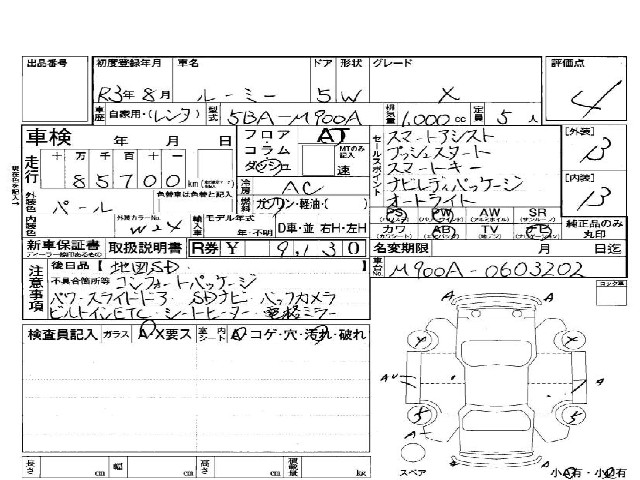 出品番号 初度登録年月 車名 ドア 形状 グレード 評価点
R3年8月 ルーミー 5 W X 4
車歴 自家用・(レンタ) 型式 5BA-M900A 排気量 1,000cc 定員 5人
車検 年 月 日 フロア・コラム ダッシュ AT MTのみ記入 速
走行 十 万 千 百 十 一
85700 km
冷房 AC
外装色 パール 色替車は色替と記入
燃料 ガソリン・軽油・( )
内装色 外装カラーNo. W24 輸入車 モデル年式 年・不明 D車・並 右H・左H
現在色を記入
セールスポイント
スマートアシスト
プッシュスタート
スマートキー
ナビレディパッケージ
オートライト
[外装] B
[内装] B
PS PW AW SR
(パワステ) (パワーウインド) (アルミホイル) (サンルーフ)
カワ AB TV ナビ
(カワシート) (エアバッグ) (地デジ) (ナビ)
純正品のみ丸印
新車保証書 取扱説明書 R券 ¥ 9,130 名変期限 月 日迄
ディーラー検印あるもの
注意事項
後日品【 地図SD 】
車台No. M900A-0603202
不具合箇所等 コンフォートパッケージ
パワースライドドア SDナビ バックカメラ
ビルトインETC シートヒーター 電格ミラー
ロング車
検査員記入 ガラス A・X要ス 室内 シート 内ドア A・コゲ・穴・汚れ・破れ
A
X X
AU A
5 5
A
A
スペア
小A有・小U有
長さ cm 幅 cm 高さ cm 積載量 kg